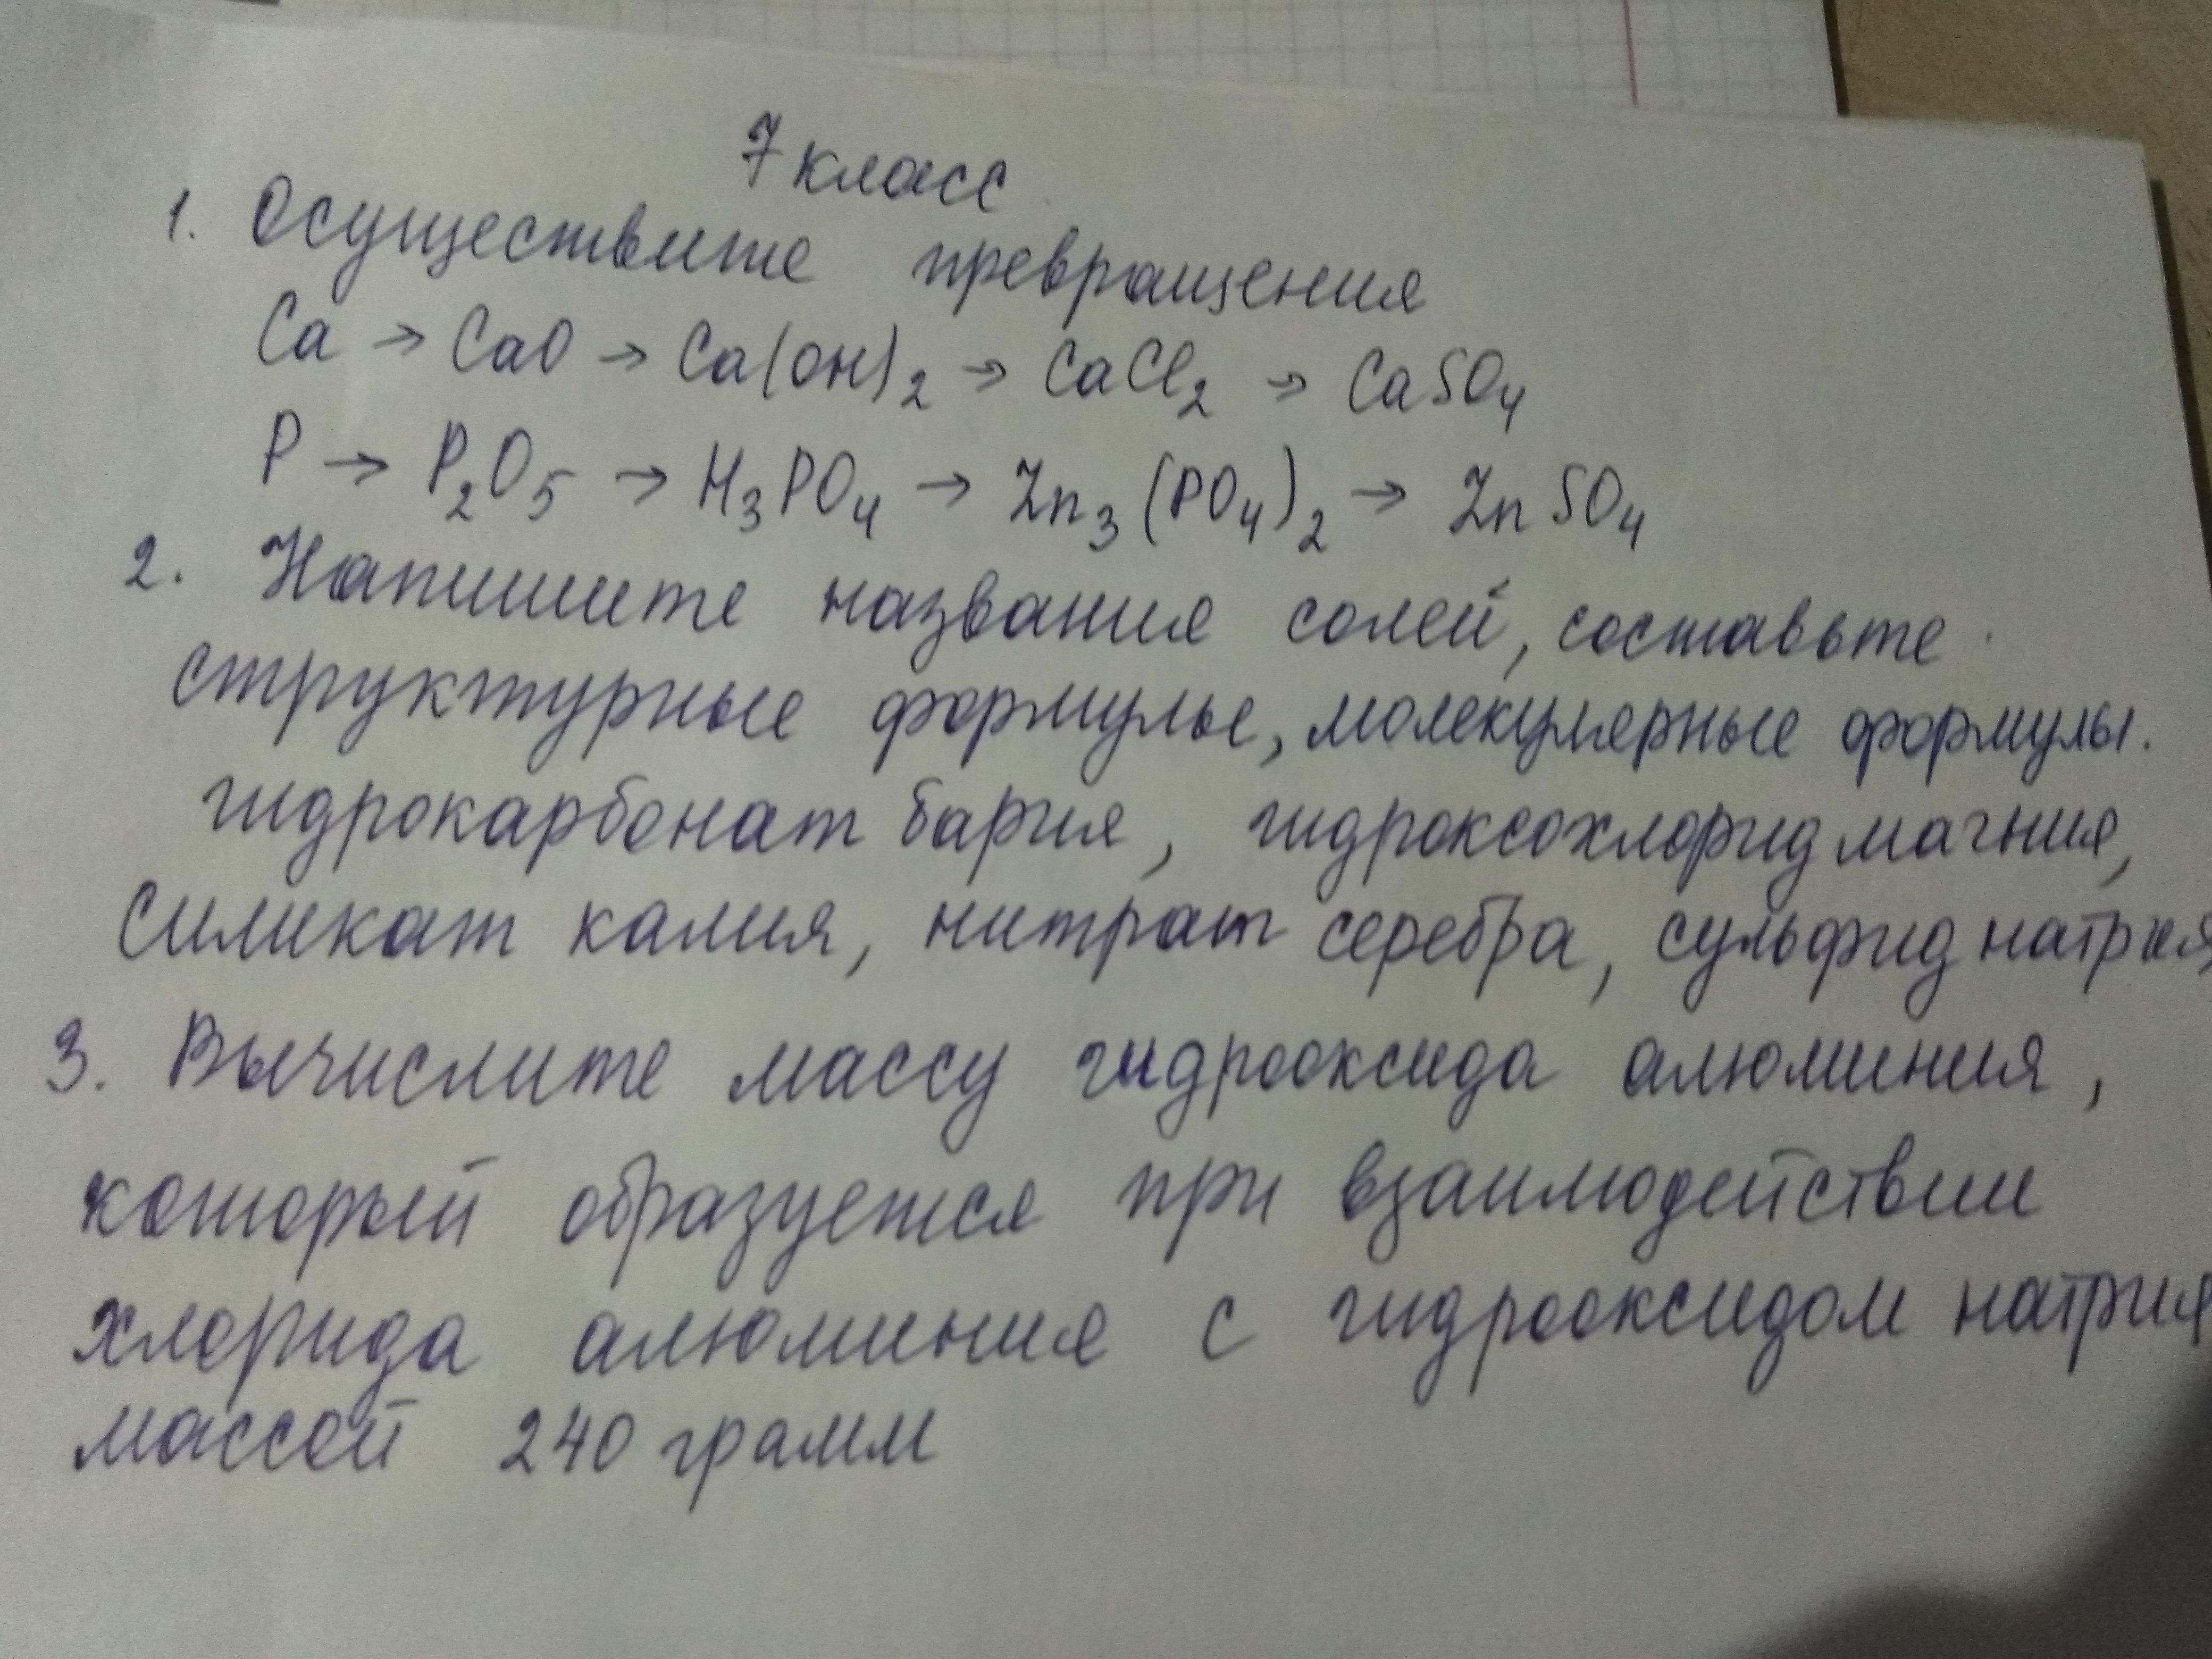 7 класс
1. Осуществите превращения
Ca → CaO → Ca(OH)₂ → CaCl₂ → CaSO₄
P → P₂O₅ → H₃PO₄ → Zn₃(PO₄)₂ → ZnSO₄
2. Напишите названия солей, составьте
структурные формулы, молекулярные формулы.
гидрокарбонат бария, гидроксохлорид магния,
силикат калия, нитрат серебра, сульфид натрия
3. Вычислите массу гидрооксида алюминия,
который образуется при взаимодействии
хлорида алюминия с гидрооксидом натрия
массой 240 грамм